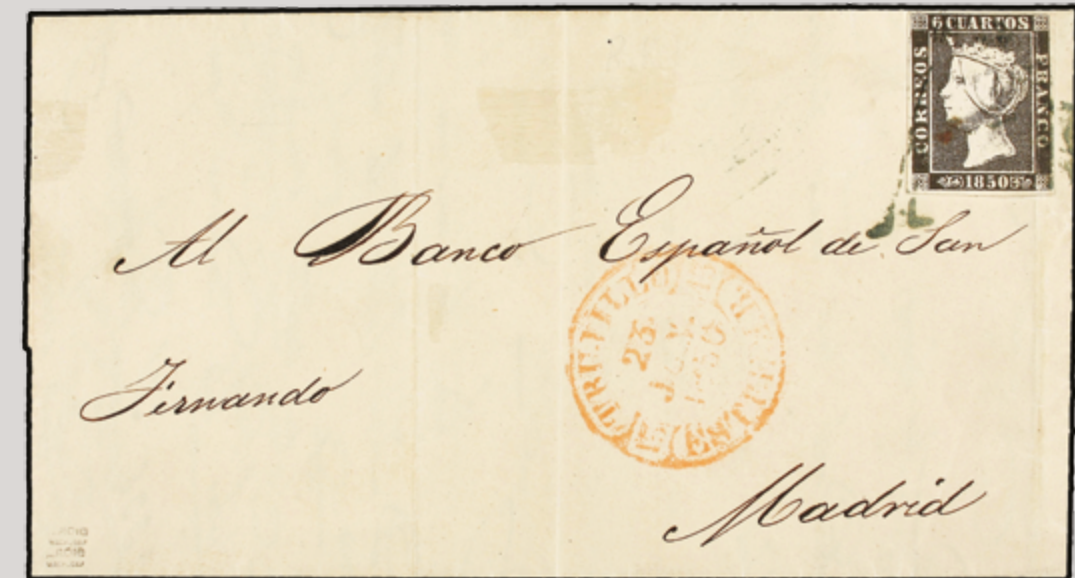 6 CUARTOS
CORREOS
FRANCO
1850
Al Banco Español de San
Fernando
TRUJILLO
23
1850
Madrid